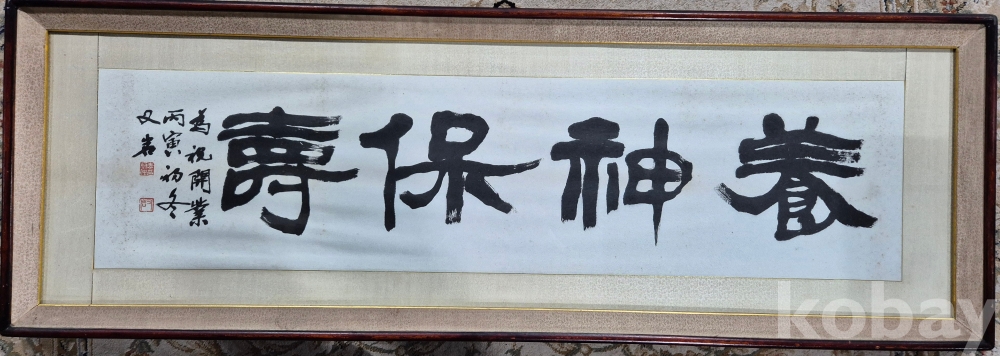 養神保壽
為祝開業
丙寅初冬
又岩
kobay